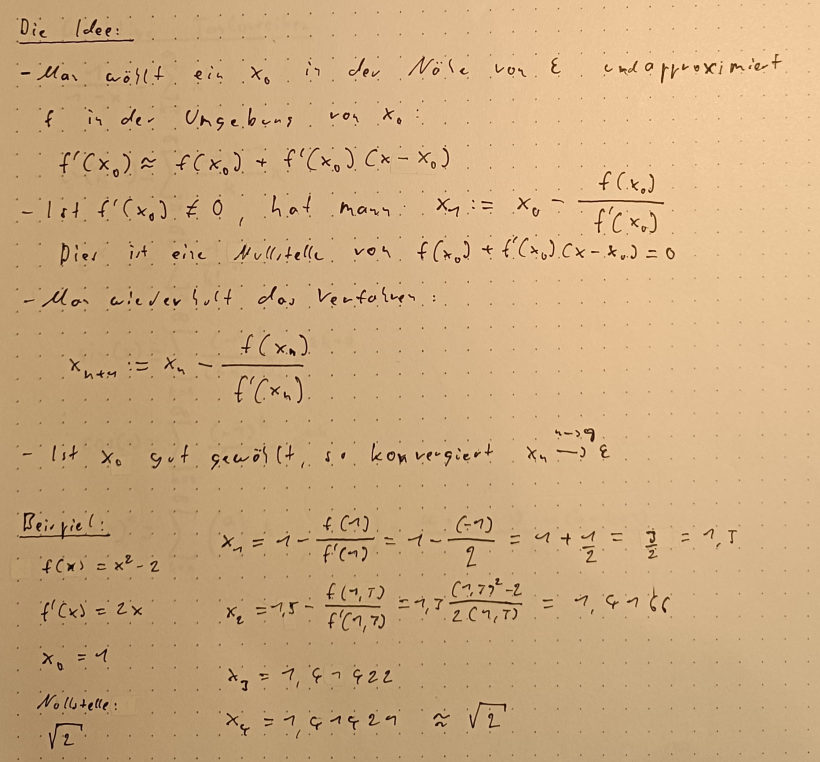 Die Idee:
- Man wählt ein x₀ in der Nähe von ε und approximiert
f in der Umgebung von x₀:
f'(x₀) ≈ f(x₀) + f'(x₀) (x - x₀)
- Ist f'(x₀) ≠ 0, hat mann: x₁ := x₀ - f(x₀)/f'(x₀)
Dies ist eine Nullstelle von f(x₀) + f'(x₀)(x - x₀) = 0
- Man wiederholt das Verfahren:
xₙ₊₁ := xₙ - f(xₙ)/f'(xₙ)
- Ist x₀ gut gewählt, so konvergiert xₙ → ε
Beispiel:
f(x) = x² - 2
f'(x) = 2x
x₀ = 1
Nullstelle:
√2
x₁ = 1 - f(1)/f'(1) = 1 - (-1)/2 = 1 + 1/2 = 3/2 = 1,5
x₂ = 1,5 - f(1,5)/f'(1,5) = 1,5 (1,5)²-2/2(1,5) = 1,4166
x₃ = 1,41422
x₄ = 1,41421 ≈ √2